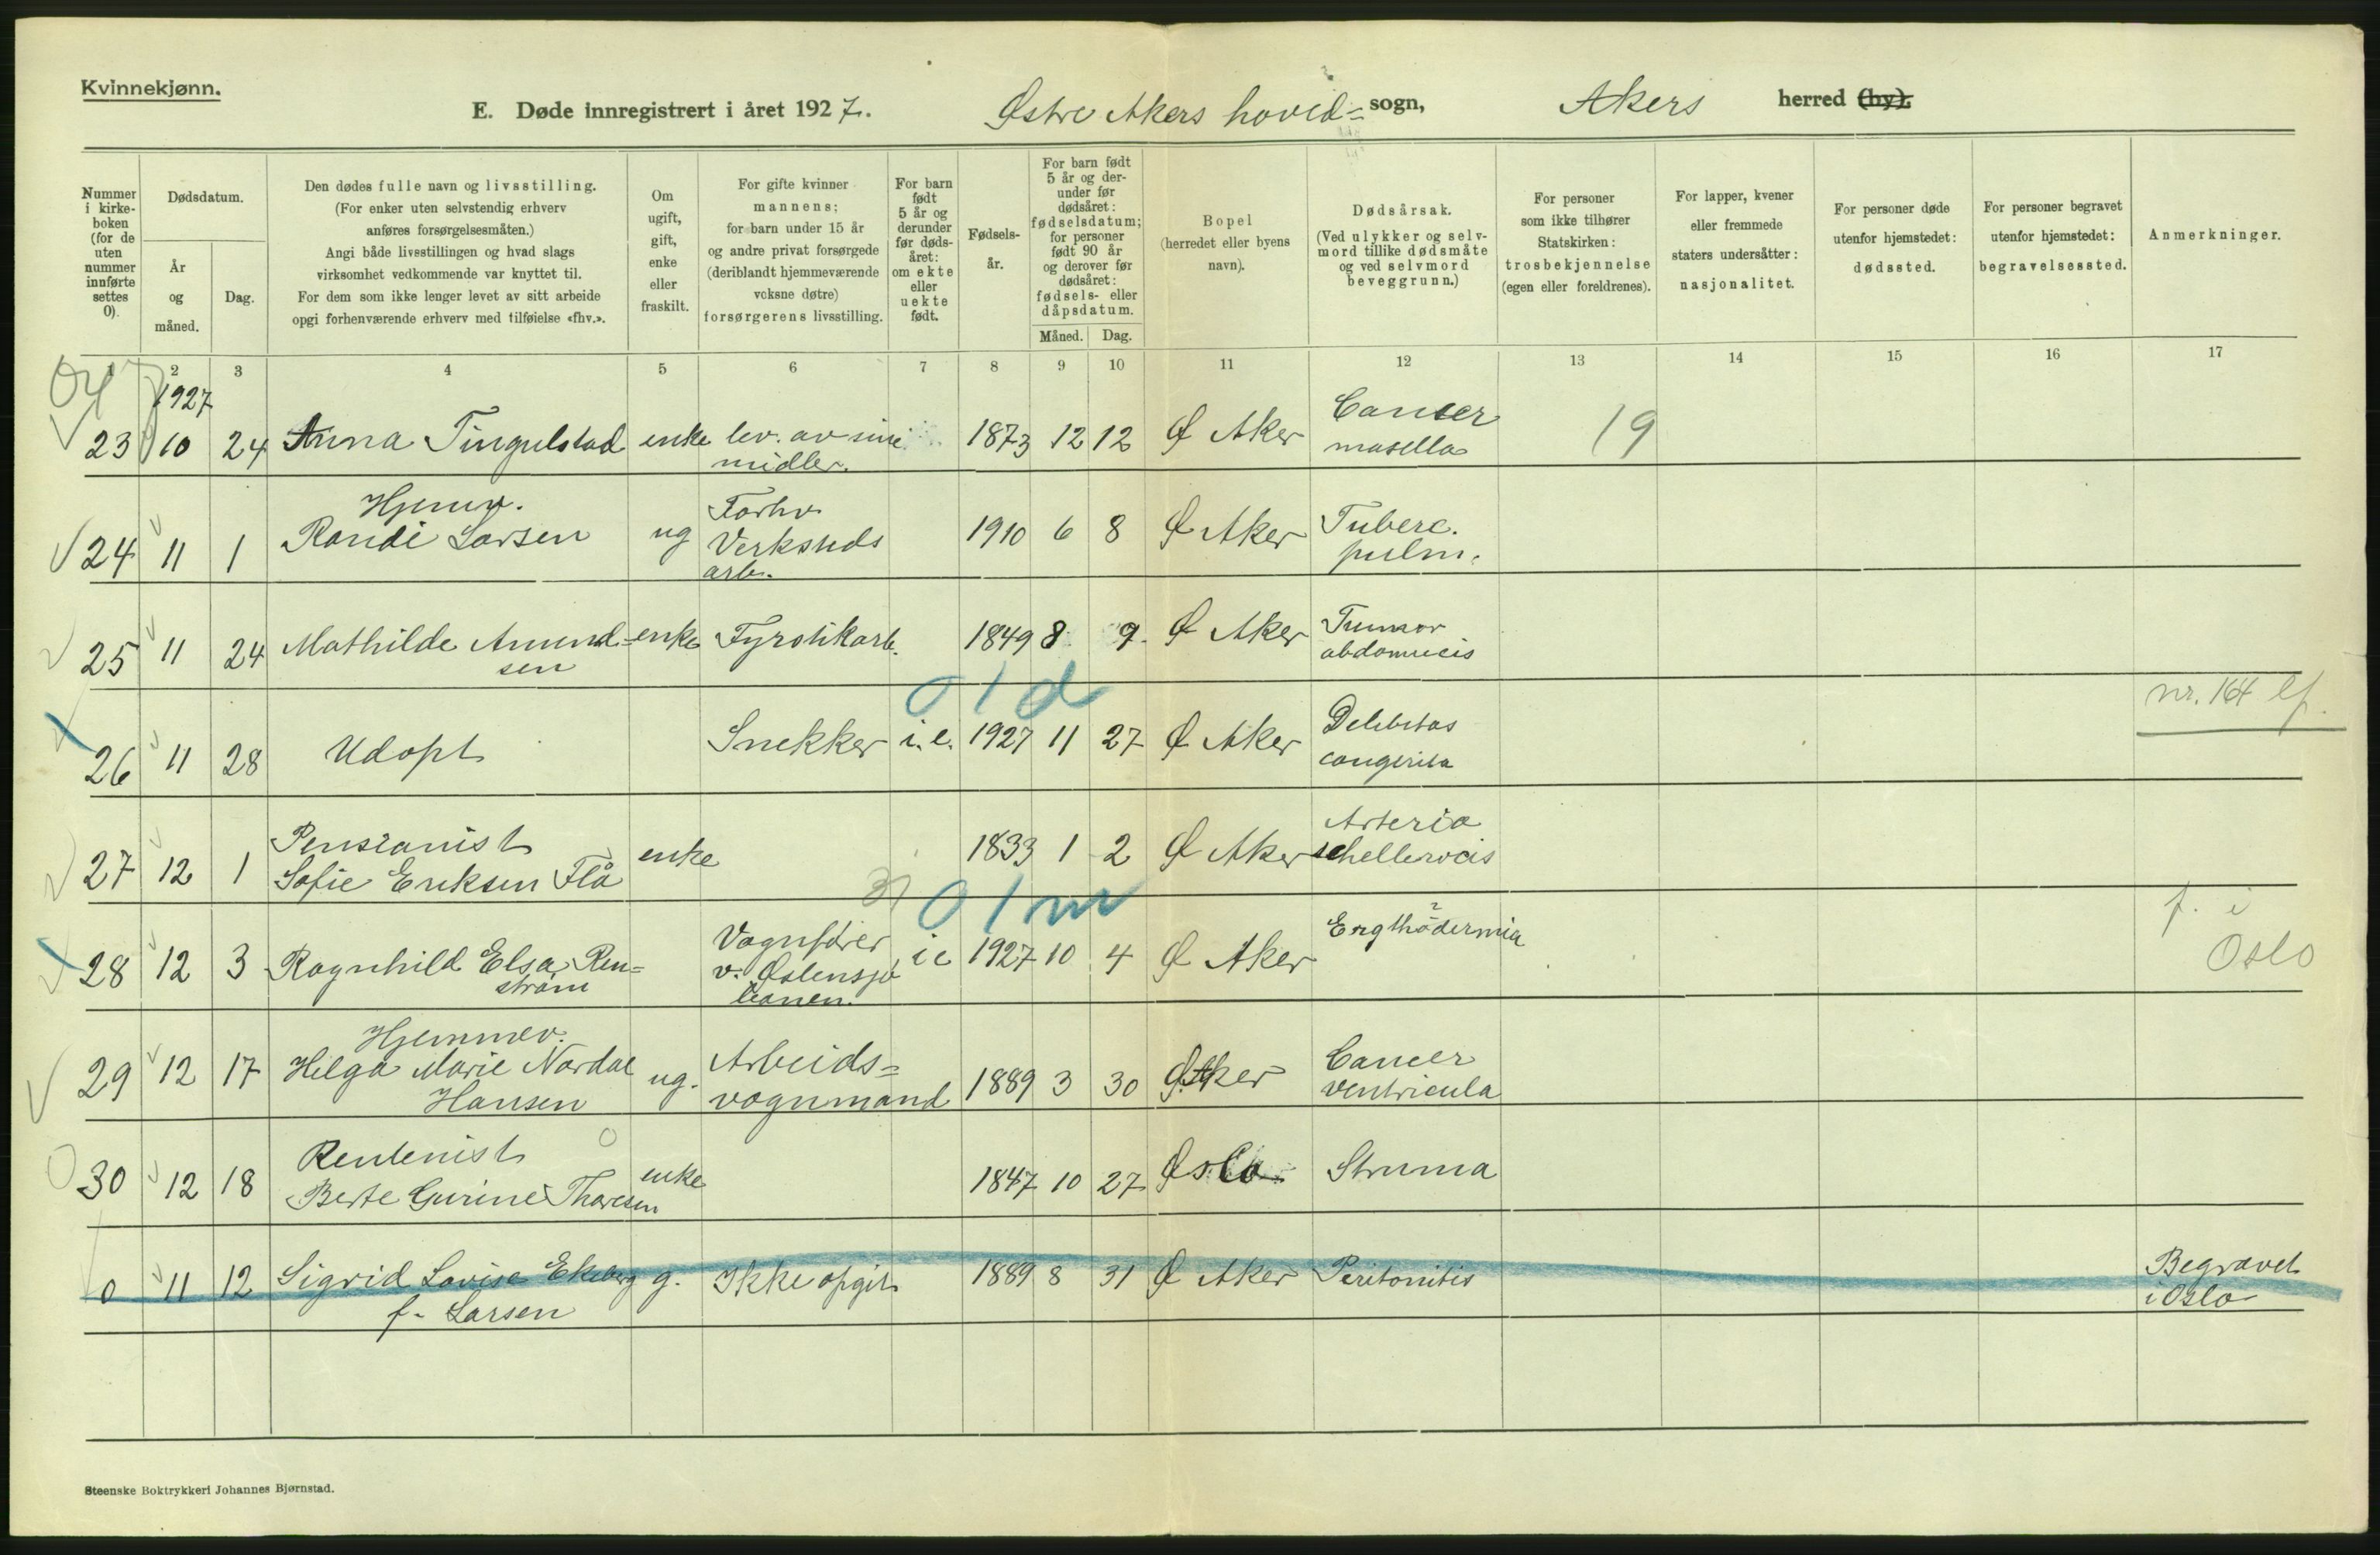 Kvinnekjønn.
E. Døde innregistrert i året 1927. Østre Akers hoved= sogn, Akers herred (by).
Nummer i kirke- boken (for de uten nummer innførte settes 0).
Dødsdatum.
År og måned.
Dag.
Den dødes fulle navn og livsstilling.
(For enker uten selvstendig erhverv
anføres forsørgelsesmåten.)
Angi både livsstillingen og hvad slags
virksomhet vedkommende var knyttet til.
For dem som ikke lenger levet av sitt arbeide
opgi forhenværende erhverv med tilføielse «fhv.».
Om ugift, gift, enke eller fraskilt.
For gifte kvinner
mannens;
for barn under 15 år
og andre privat forsørgede
(deriblandt hjemmeværende
voksne døtre)
forsørgerens livsstilling.
For barn født 5 år og derunder før døds- året: om ekte eller uekte født.
Fødsels- år.
For barn født
5 år og der-
under før
dødsåret:
fødselsdatum;
for personer
født 90 år
og derover før
dødsåret:
fødsels- eller
dåpsdatum.
Måned. Dag.
Bopel
(herredet eller byens
navn).
Dødsårsak.
(Ved ulykker og selv-
mord tillike dødsmåte
og ved selvmord
beveggrunn.)
For personer
som ikke tilhører
Statskirken:
trosbekjennelse
(egen eller foreldrenes).
For lapper, kvener
eller fremmede
staters undersåtter:
nasjonalitet.
For personer døde
utenfor hjemstedet:
dødssted.
For personer begravet
utenfor hjemstedet:
begravelsessted.
Anmerkninger.
1 2 3 4 5 6 7 8 9 10 11 12 13 14 15 16 17
1927
23 10 24 Anna Tingulstad enke lev. av sine midler. 1873 12 12 Ø Aker Cancer masella 19
24 11 1 Hjemv. Randi Larsen ug Forhv. Verksteds arb. 1910 6 8 Ø Aker Tuberc. pulm.
25 11 24 Mathilde Amund= sen enke Fyrstikarb. 1849 8 9. Ø Aker Tumor abdomicis
0 1 d
nr. 164 lf.
26 11 28 Udøpt Snekker i.e. 1927 11 27 Ø Aker Debitas congenita
27 12 1 Pensionist Sofie Eriksen Flå enke 1833 1 2 Ø Aker Arteria schellerocis
0 1 m
28 12 3 Ragnhild Elsa Ren= strøm Vognfører v. Østensjø banen. ie 1927 10 4 Ø Aker f. i Oslo
29 12 17 Hjemmev. Helga Marie Nordal Hansen ug. Arbeids= vognmand 1889 3 30 Ø. Aker Cancer ventricula
30 12 18 Rentenist Berte Gurine Thoresen enke 1847 10 27 Øslo Struma
0 11 12 Sigrid Lovise Ekeberg f. Larsen g. Ikke opgit 1889 8 31 Ø Aker Peritonitis Begravet i Oslo
Steenske Boktrykkeri Johannes Bjørnstad.